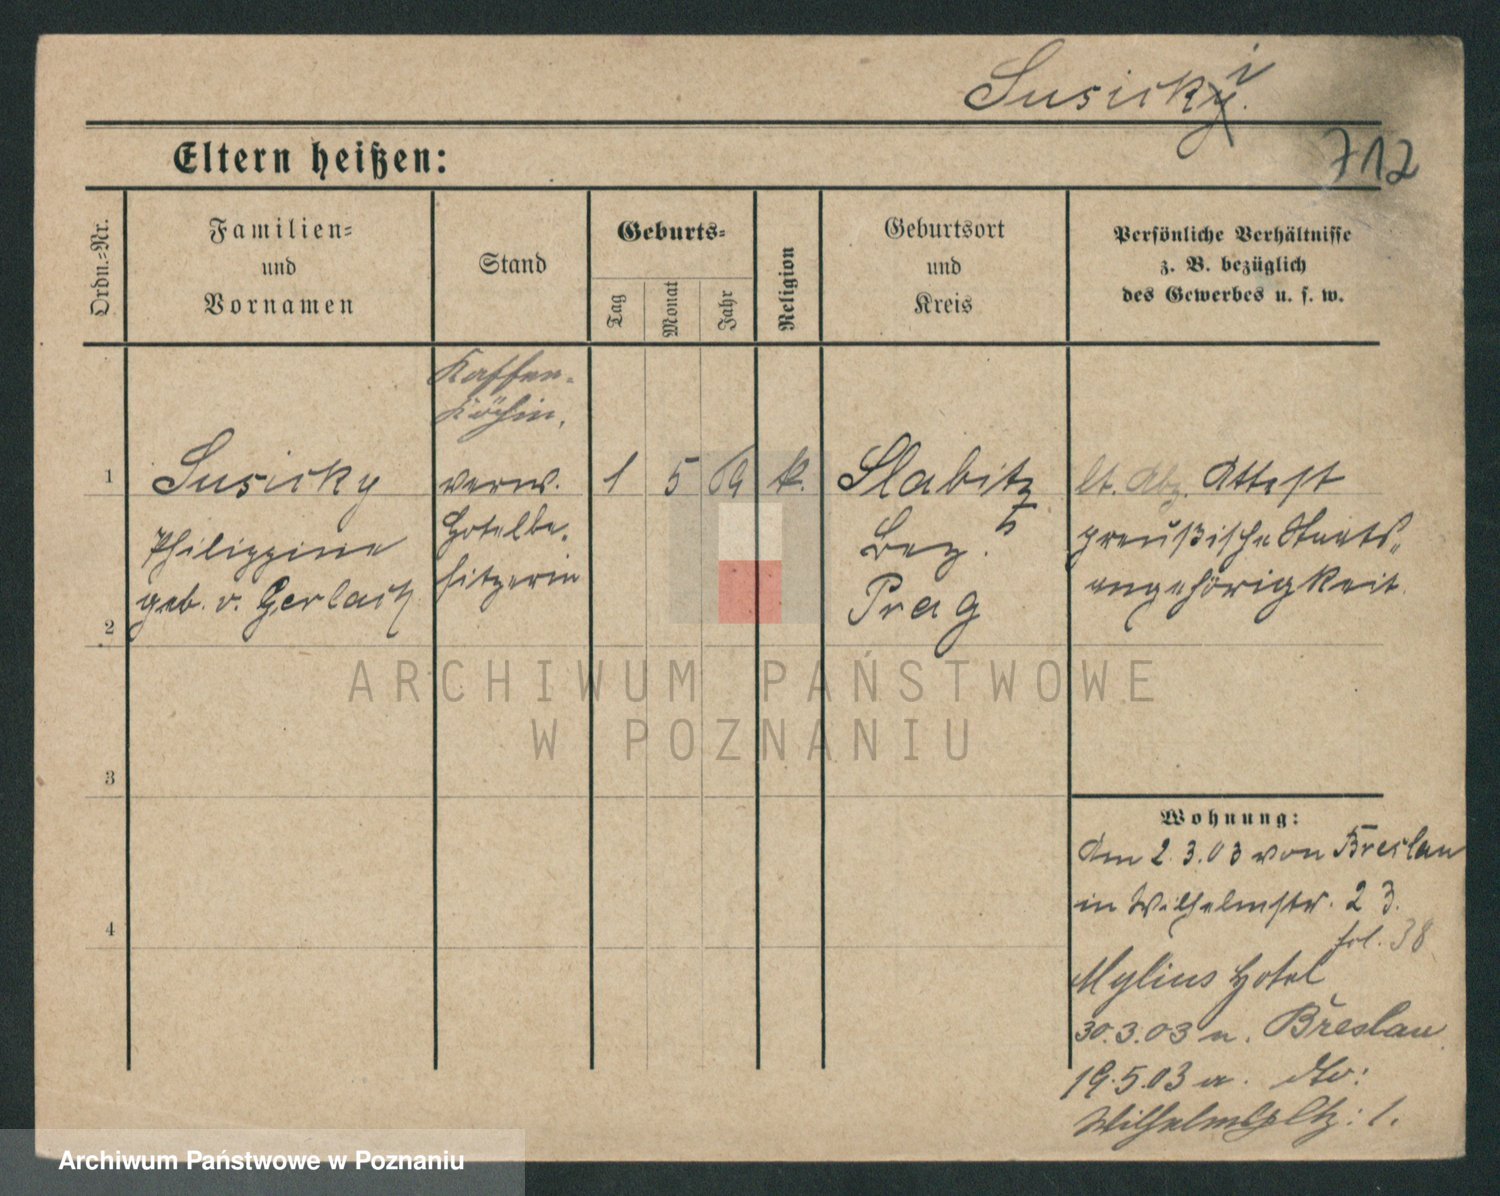 Susicky i.
712
Eltern heißen:
Ordn.-Nr.
Familien-
und
Vornamen
Stand
Geburts-
Tag
Monat
Jahr
Religion
Geburtsort
und
Kreis
Persönliche Verhältnisse
z. B. bezüglich
des Gewerbes u. s. w.
Kaffee-
köchin,
1 Susicky verw. 1 5 69 k. Slabitz lt. Abz. Attest
Philippine Hotelbe- Bez. preußische Staats-
geb. v. Gerlach sitzerin Prag angehörigkeit.
2
3
4
Wohnung:
Am 2.3.03 von Breslau
in Wilhelmstr. 23.
fol. 38
Mylius Hotel
30.3.03 n. Breslau
19.5.03 a. dto:
Wilhelmspltz: 1.
ARCHIWUM PAŃSTWOWE
W POZNANIU
Archiwum Państwowe w Poznaniu